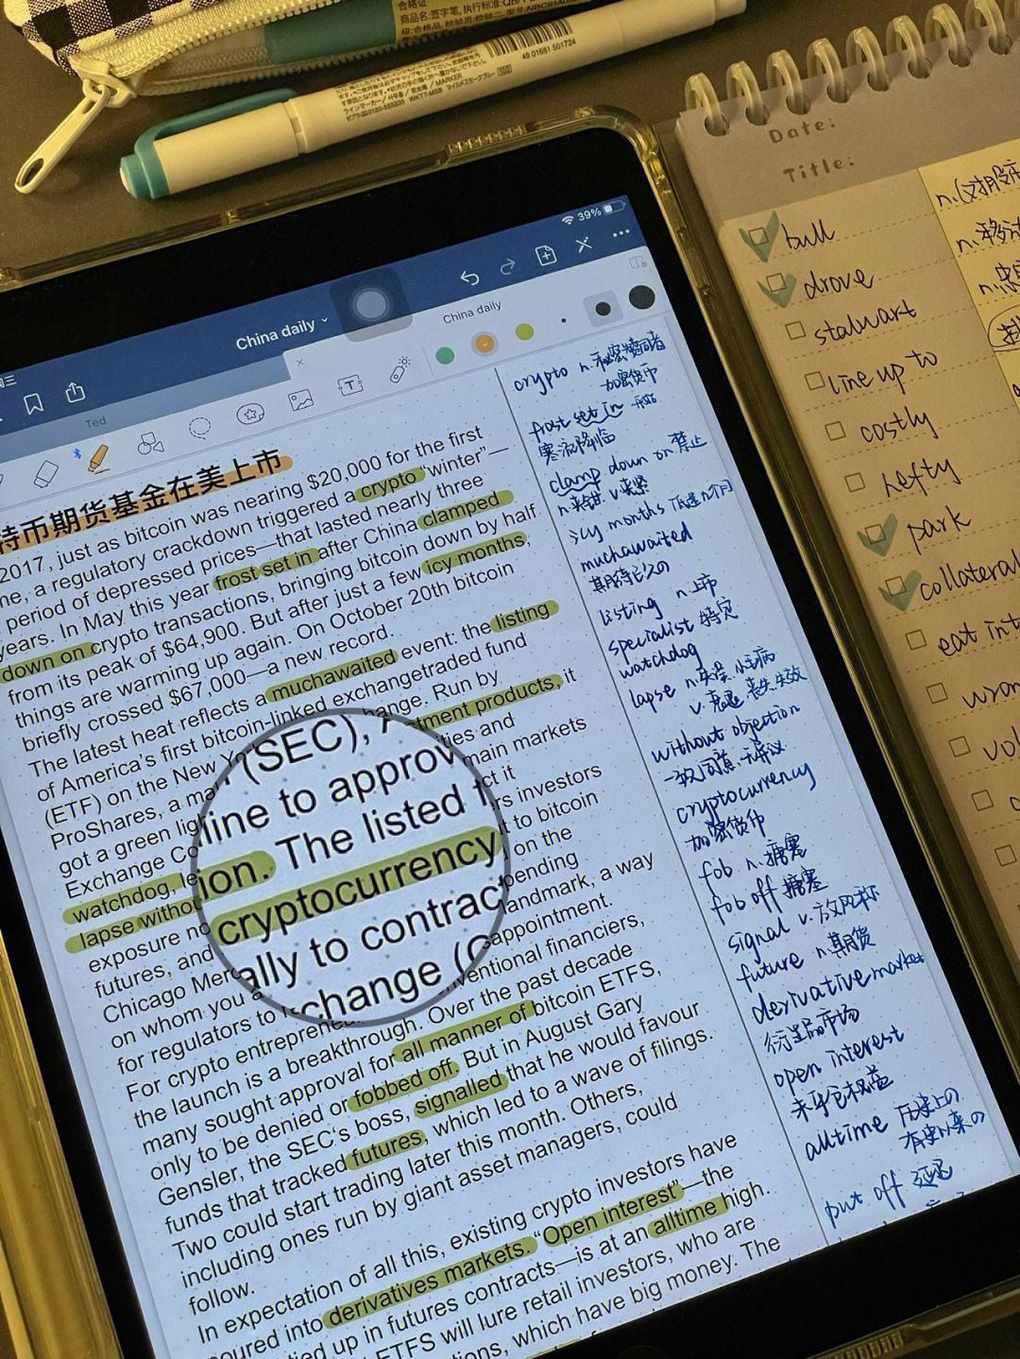 合格证
商品名:签字笔,执行标准:QB/T
49 01681 501724
ラインマーカー / MARKER
Date:
Title:
39%
China daily
China daily
Ted
特币期货基金在美上市
2017, just as bitcoin was nearing $20,000 for the first
me, a regulatory crackdown triggered a crypto "winter"—
period of depressed prices—that lasted nearly three
years. In May this year frost set in after China clamped
down on crypto transactions, bringing bitcoin down by half
from its peak of $64,900. But after just a few icy months,
things are warming up again. On October 20th bitcoin
briefly crossed $67,000—a new record.
The latest heat reflects a muchawaited event: the listing
of America's first bitcoin-linked exchangetraded fund
(ETF) on the New Y hange. Run by
ProShares, a ma tment products, it
got a green lig ies and
Exchange Co main markets
watchdog, le ct it
lapse withou rs investors
exposure no t to bitcoin
futures, and on the
Chicago Mer pending
on whom you a landmark, a way
for regulators to appointment.
For crypto entrepre ventional financiers,
the launch is a breakthrough. Over the past decade
many sought approval for all manner of bitcoin ETFS,
only to be denied or fobbed off. But in August Gary
Gensler, the SEC's boss, signalled that he would favour
funds that tracked futures, which led to a wave of filings.
Two could start trading later this month. Others,
including ones run by giant asset managers, could
follow.
In expectation of all this, existing crypto investors have
oured into derivatives markets. "Open interest"—the
tied up in futures contracts—is at an alltime high.
ETFS will lure retail investors, who are
tions, which have big money. The
(SEC),
line to approv
ion. The listed f
cryptocurrency
ally to contrac
change (C
crypto n.
加密货币
frost set in
寒流降临
clamp down on 禁止
icy months
muchawaited
期待已久的
listing n.上市
specialist 特定
watchdog
lapse n.失误 小毛病
v. 丧失 失效
without objection
一致同意 无异议
cryptocurrency
加密货币
fob n. 搪塞
fob off 搪塞
signal v.
future n.期货
derivative market
衍生品市场
open interest
未平仓权益
alltime 历史上的
有史以来的
put off 延迟
bull
drove
stalwart
line up to
costly
hefty
park
collateral
eat int